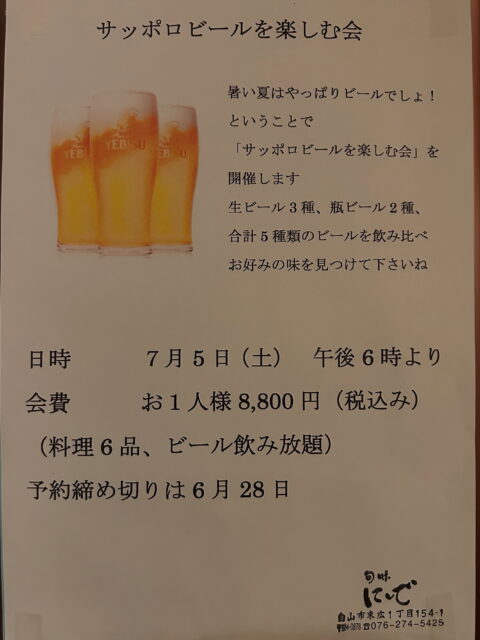 サッポロビールを楽しむ会
YEBISU
暑い夏はやっぱりビールでしょ！
ということで
「サッポロビールを楽しむ会」を
開催します
生ビール３種、瓶ビール２種、
合計５種類のビールを飲み比べ
お好みの味を見つけて下さいね
日時　７月５日（土）　午後６時より
会費　お１人様 8,800 円（税込み）
（料理６品、ビール飲み放題）
予約締め切りは６月 28 日
旬味
にいで
白山市末広1丁目154-1
☎076-274-5425